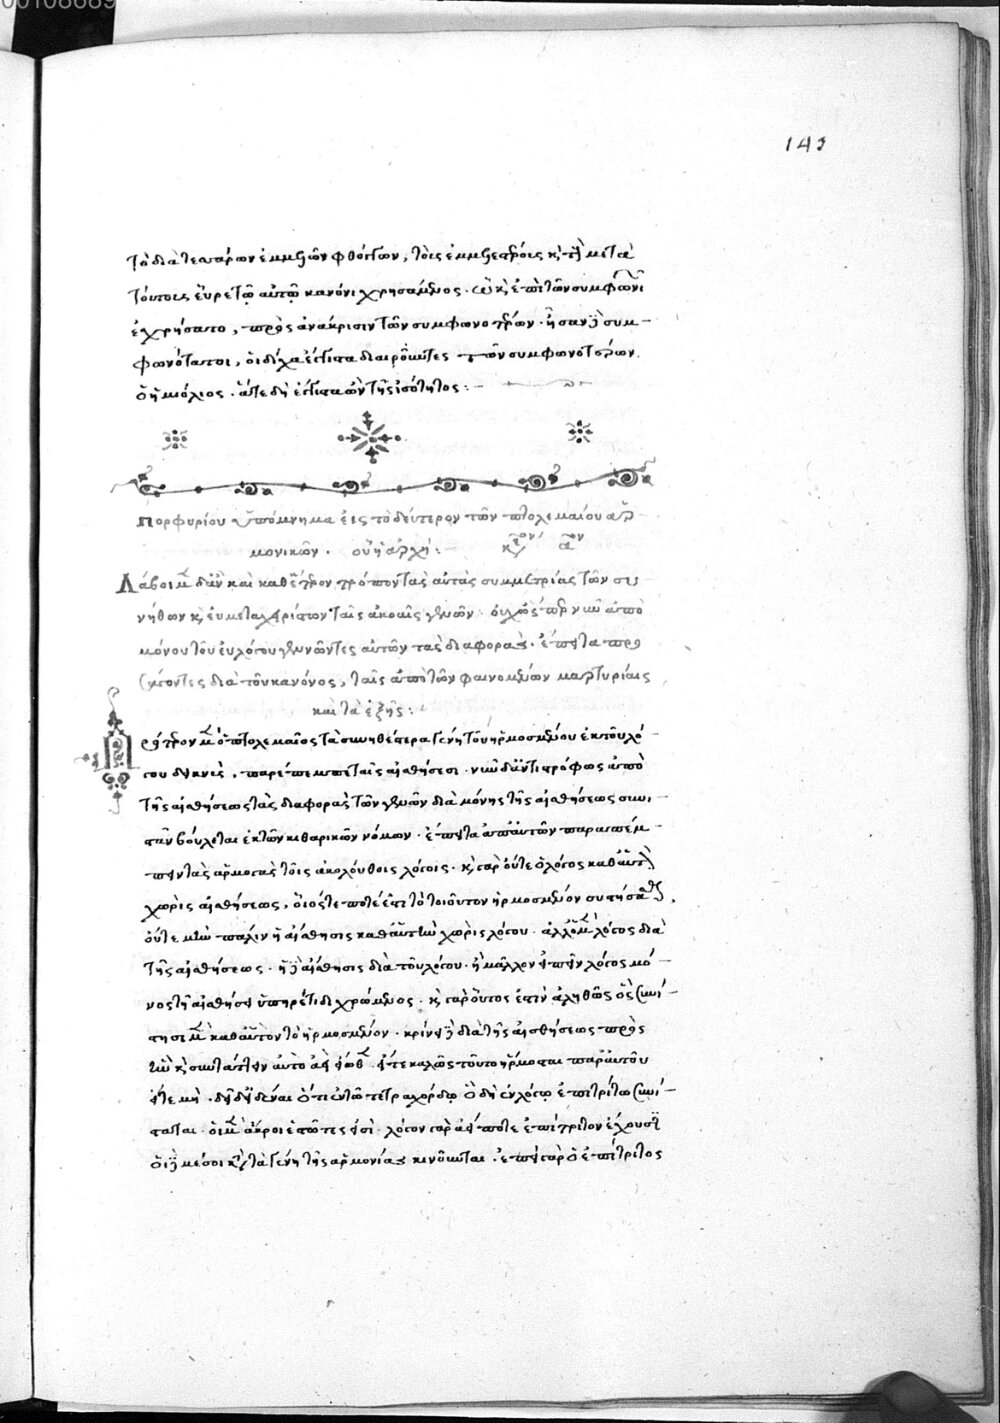 00108689
143
τὸ διὰ τεσσάρων ἐμμελῶν φθόγγων, τοῖς ἐμμελεστέροις καὶ τῇ μετὰ
τούτοις εὕρετο τῷ αὐτῷ κανόνι χρησάμενος. ᾧ καὶ ἐπὶ τῶν συμφώνων
ἐχρήσατο, πρὸς ἀνάκρισιν τῶν συμφωνοτέρων. ἦσαν δὲ συμ-
φωνότατοι, οἱ δίχα ἔγγιστα διαιροῦντες τῶν συμφωνοτέρων
ὁ ἡμιόλιος. ἅτε δὴ ἔγγιστα ὢν τῆς ἰσότητος:-
Πορφυρίου ὑπόμνημα εἰς τὸ δεύτερον τῶν πτολεμαίου ἁρ-
μονικῶν. οὗ ἡ ἀρχή:- κεφ ον αον
Λάβοιμεν δ' ἂν καὶ καθ' ἕτερον τρόπον τὰς αὐτὰς συμμετρίας τῶν συ-
νήθων καὶ εὐμεταχειρίστων ταῖς ἀκοαῖς γενῶν. οὐχ ὥσπερ νῦν ἀπὸ
μόνου τοῦ εὐλόγου γεννῶντες αὐτῶν τὰς διαφοράς. ἔπειτα προσ
άγοντες διὰ τοῦ κανόνος, ταῖς ἀπὸ τῶν φαινομένων μαρτυρίαις
καὶ τὰ ἑξῆς:
Πρότερον μὲν ὁ πτολεμαῖος τὰ συνηθέστερα γένη τοῦ ἡρμοσμένου ἐκ τοῦ λό-
γου δεικνὺς, παρέπεμπε ταῖς αἰσθήσεσι. νῦν δ' ἀντιστρόφως ἀπὸ
τῆς αἰσθήσεως τὰς διαφορὰς τῶν γενῶν διὰ μόνης τῆς αἰσθήσεως συνι-
στᾶν βούλεται ἐκ τῶν κιθαρικῶν νόμων. ἔπειτα ἀπ' αὐτῶν παραπέμ-
πειν τὰς ἁρμογὰς τοῖς ἀκολούθοις λόγοις. καὶ γὰρ οὔτε ὁ λόγος καθ' αὑτὸν
χωρὶς αἰσθήσεως, οἷός τε ποτέ ἐστι τὸ τοιοῦτον ἡρμοσμένον συστήσασθαι,
οὔτε μὴν πάλιν ἡ αἴσθησις καθ' αὑτὴν χωρὶς λόγου. ἀλλ' ὁ μὲν λόγος διὰ
τῆς αἰσθήσεως. ἡ δὲ αἴσθησις διὰ τοῦ λόγου. ἢ μᾶλλον εἰπεῖν λόγος μό-
νος τῇ αἰσθήσει ὑπηρέτιδι χρώμενος. καὶ γὰρ οὗτος ἐστὶν ἀληθῶς ὃς συνί-
στησι μὲν καθ' αὑτὸν τὸ ἡρμοσμένον. κρίνει δὲ διὰ τῆς αἰσθήσεως πρὸς
ἣν καὶ συντάττειν αὐτὸ εἴωθεν. εἴτε καλῶς τοῦτο ἥρμοσται παρ' αὐτοῦ
εἴτε μή. δεῖ δ' εἰδέναι ὅτι ἐν τῷ τετραχόρδῳ ὃ δὴ ἐν λόγῳ ἐπιτρίτῳ συνί-
σταται. οἱ μὲν ἄκροι ἑστῶτες εἰσὶ. λόγον γὰρ ἀεί ποτε ἐπίτριτον ἔχουσι
οἱ δὲ μέσοι κατὰ τὰ γένη τῆς ἁρμονίας κινοῦνται. ἐπεὶ γὰρ ὁ ἐπίτριτος